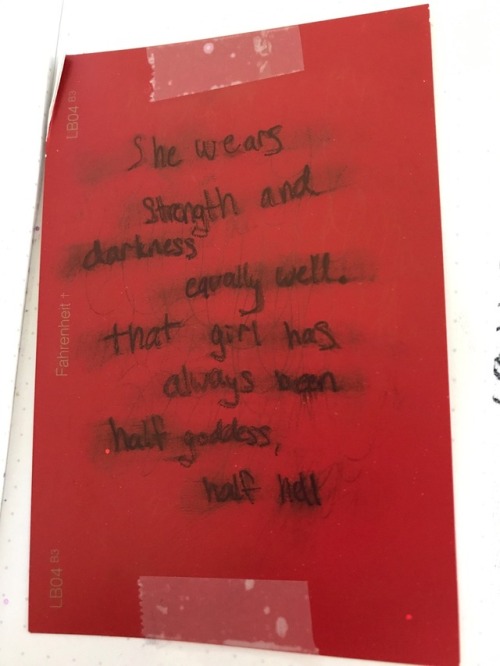 She wears
Strength and
darkness
equally well.
that girl has
always been
half goddess,
half hell
LB04 B3
Fahrenheit †
LB04 B3